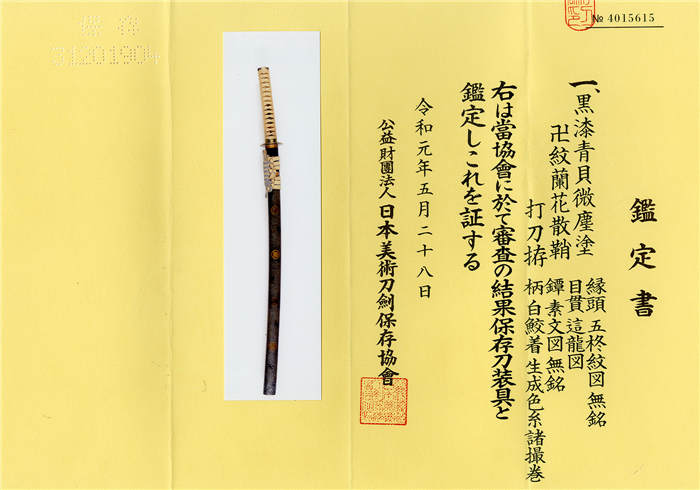 № 4015615
鑑定書
一、黒漆青貝微塵塗
卍紋蘭花散鞘
打刀拵
縁頭 五柊紋図 無銘
目貫 這龍図
鐔 素文図 無銘
柄 白鮫着 生成色糸諸撮巻
右は當協會に於て審査の結果保存刀装具と
鑑定しこれを証する
令和元年五月二十八日
公益財團法人 日本美術刀劍保存協會
31201904